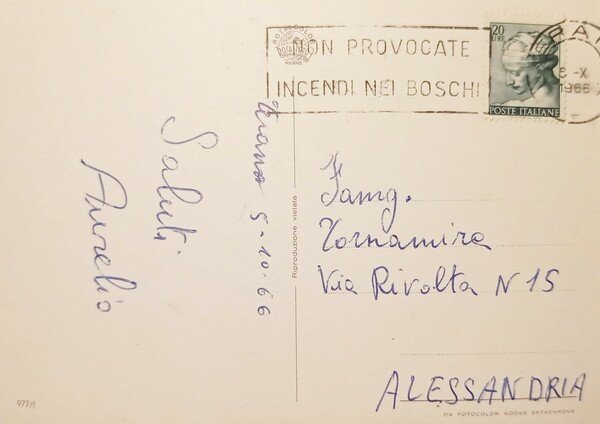 NON PROVOCATE
INCENDI NEI BOSCHI
20
LIRE
POSTE ITALIANE
5-10-66
Saluti
Aurelio
Riproduzione vietata
Famg.
Tornamira
Via Rivolta N 15
ALESSANDRIA
DA FOTOCOLOR KODAK EKTACHROME